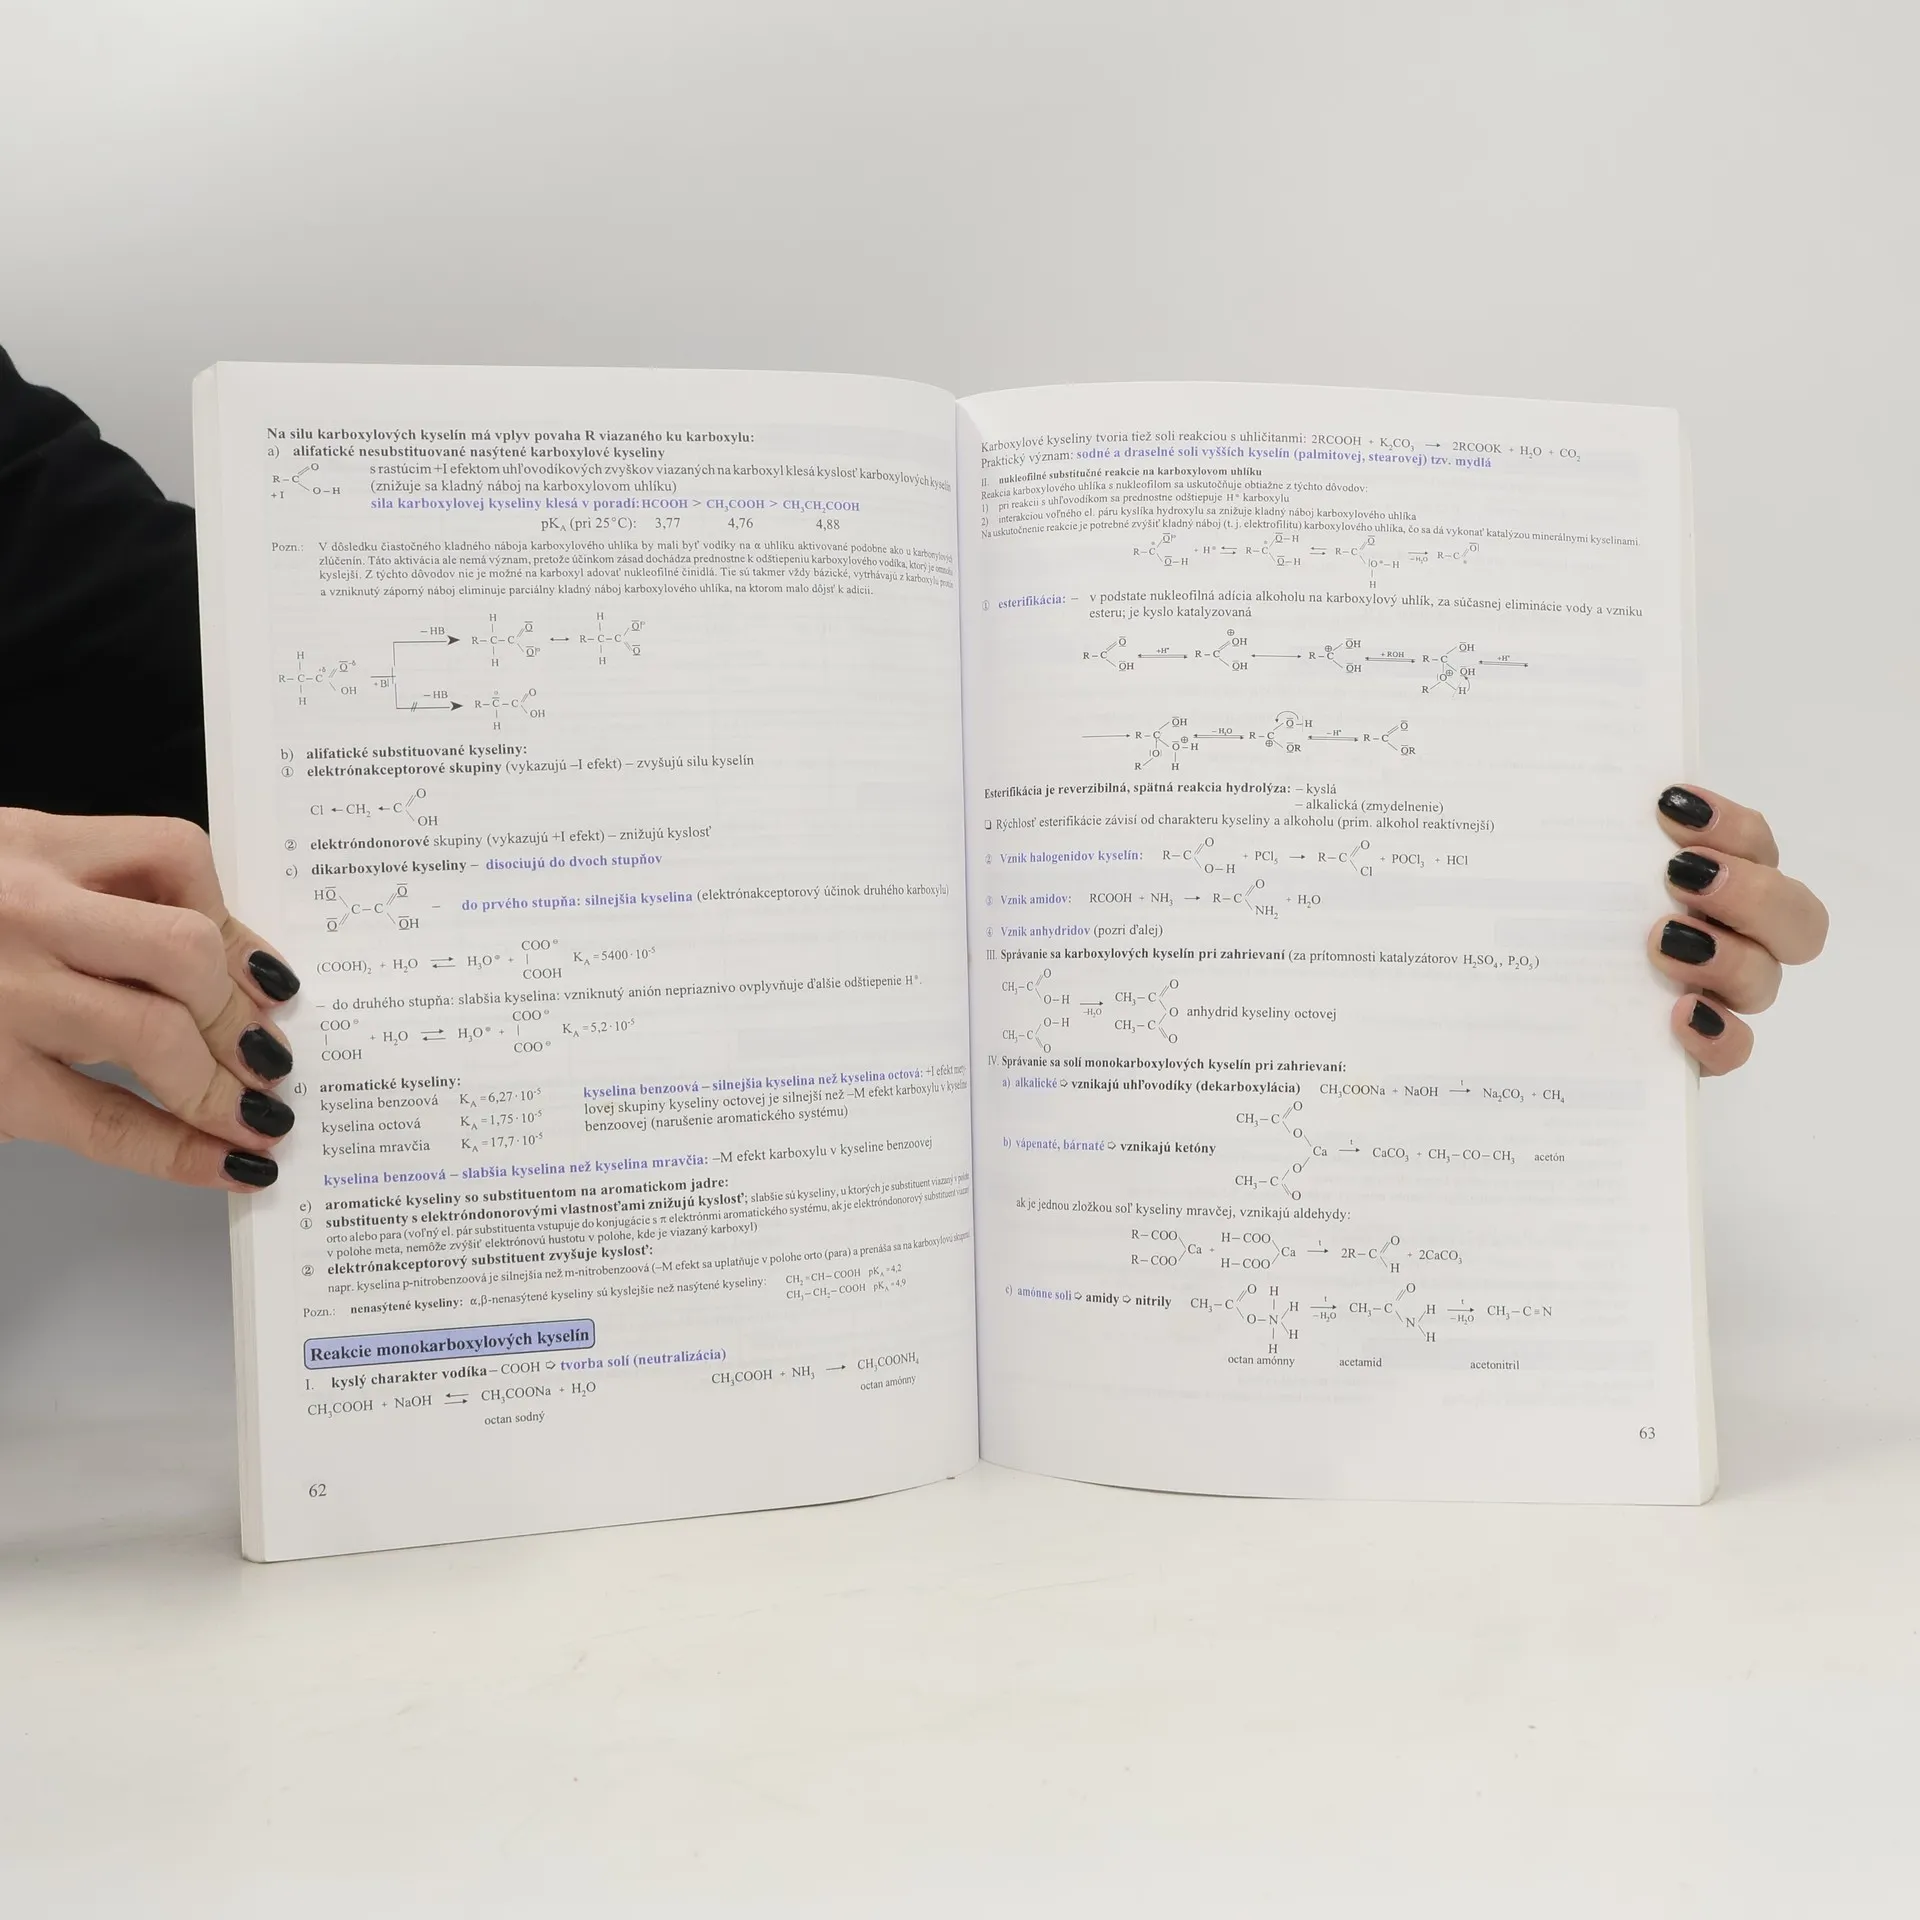 Na silu karboxylových kyselín má vplyv povaha R viazaného ku karboxylu:
a) alifatické nesubstituované nasýtené karboxylové kyseliny
R–C O O–H +I
s rastúcim +I efektom uhľovodíkových zvyškov viazaných na karboxyl klesá kyslosť karboxylových kyselín
(znižuje sa kladný náboj na karboxylovom uhlíku)
sila karboxylovej kyseliny klesá v poradí: HCOOH > CH₃COOH > CH₃CH₂COOH
pK_A (pri 25°C): 3,77 4,76 4,88
Pozn.: V dôsledku čiastočného kladného náboja karboxylového uhlíka by mali byť vodíky na α uhlíku aktivované podobne ako u karbonylových
zlúčenín. Táto aktivácia ale nemá význam, pretože účinkom zásad dochádza prednostne k odštiepeniu karboxylového vodíka, ktorý je omnoho
kyslejší. Z týchto dôvodov nie je možné na karboxyl adovať nukleofilné činidlá. Tie sú takmer vždy bázické, vytrhávajú z karboxylu protón
a vzniknutý záporný náboj eliminuje parciálny kladný náboj karboxylového uhlíka, na ktorom malo dôjsť k adícii.
b) alifatické substituované kyseliny:
① elektrónakceptorové skupiny (vykazujú –I efekt) – zvyšujú silu kyselín
Cl ←CH₂ ←C O OH
② elektróndonorové skupiny (vykazujú +I efekt) – znižujú kyslosť
c) dikarboxylové kyseliny – disociujú do dvoch stupňov
– do prvého stupňa: silnejšia kyselina (elektrónakceptorový účinok druhého karboxylu)
(COOH)₂ + H₂O ⇌ H₃O⊕ + COO⊖ COOH K_A = 5400·10⁻⁵
– do druhého stupňa: slabšia kyselina: vzniknutý anión nepriaznivo ovplyvňuje ďalšie odštiepenie H⁺.
COO⊖ COOH + H₂O ⇌ H₃O⊕ + COO⊖ COO⊖ K_A = 5,2·10⁻⁵
d) aromatické kyseliny:
kyselina benzoová K_A = 6,27·10⁻⁵
kyselina octová K_A = 1,75·10⁻⁵
kyselina mravčia K_A = 17,7·10⁻⁵
kyselina benzoová – silnejšia kyselina než kyselina octová: +I efekt mety-
lovej skupiny kyseliny octovej je silnejší než –M efekt karboxylu v kyseline
benzoovej (narušenie aromatického systému)
kyselina benzoová – slabšia kyselina než kyselina mravčia: –M efekt karboxylu v kyseline benzoovej
e) aromatické kyseliny so substituentom na aromatickom jadre:
① substituenty s elektróndonorovými vlastnosťami znižujú kyslosť; slabšie sú kyseliny, u ktorých je substituent viazaný v polohe
orto alebo para (voľný el. pár substituenta vstupuje do konjugácie s π elektrónmi aromatického systému, ak je elektróndonorový substituent viazaný
v polohe meta, nemôže zvýšiť elektrónovú hustotu v polohe, kde je viazaný karboxyl)
② elektrónakceptorový substituent zvyšuje kyslosť:
napr. kyselina p-nitrobenzoová je silnejšia než m-nitrobenzoová (–M efekt sa uplatňuje v polohe orto (para) a prenáša sa na karboxylovú skupinu)
Pozn.: nenasýtené kyseliny: α,β-nenasýtené kyseliny sú kyslejšie než nasýtené kyseliny: CH₂=CH–COOH pK_A = 4,2
CH₃–CH₂–COOH pK_A = 4,9
Reakcie monokarboxylových kyselín
I. kyslý charakter vodíka – COOH ➪ tvorba solí (neutralizácia)
CH₃COOH + NaOH ⇌ CH₃COONa + H₂O CH₃COOH + NH₃ → CH₃COONH₄
octan sodný octan amónny
62
Karboxylové kyseliny tvoria tiež soli reakciou s uhličitanmi: 2RCOOH + K₂CO₃ → 2RCOOK + H₂O + CO₂
Praktický význam: sodné a draselné soli vyšších kyselín (palmitovej, stearovej) tzv. mydlá
II. nukleofilné substitučné reakcie na karboxylovom uhlíku
Reakcia karboxylového uhlíka s nukleofilom sa uskutočňuje obtiažne z týchto dôvodov:
1) pri reakcii s uhľovodíkom sa prednostne odštiepuje H⁺ karboxylu
2) interakciou voľného el. páru kyslíka hydroxylu sa znižuje kladný náboj karboxylového uhlíka
Na uskutočnenie reakcie je potrebné zvýšiť kladný náboj (t. j. elektrofilitu) karboxylového uhlíka, čo sa dá vykonať katalýzou minerálnymi kyselinami.
① esterifikácia: – v podstate nukleofilná adícia alkoholu na karboxylový uhlík, za súčasnej eliminácie vody a vzniku
esteru; je kyslo katalyzovaná
Esterifikácia je reverzibilná, spätná reakcia hydrolýza: – kyslá
– alkalická (zmydelnenie)
❏ Rýchlosť esterifikácie závisí od charakteru kyseliny a alkoholu (prim. alkohol reaktívnejší)
② Vznik halogenidov kyselín: R–C O O–H + PCl₅ → R–C O Cl + POCl₃ + HCl
③ Vznik amidov: RCOOH + NH₃ → R–C O NH₂ + H₂O
④ Vznik anhydridov (pozri ďalej)
III. Správanie sa karboxylových kyselín pri zahrievaní (za prítomnosti katalyzátorov H₂SO₄, P₂O₅)
CH₃–C O O–H CH₃–C O–H O –H₂O → CH₃–C O O CH₃–C O anhydrid kyseliny octovej
IV. Správanie sa solí monokarboxylových kyselín pri zahrievaní:
a) alkalické ➪ vznikajú uhľovodíky (dekarboxylácia) CH₃COONa + NaOH t→ Na₂CO₃ + CH₄
b) vápenaté, bárnaté ➪ vznikajú ketóny CH₃–C O O CH₃–C O O Ca t→ CaCO₃ + CH₃–CO–CH₃ acetón
ak je jednou zložkou soľ kyseliny mravčej, vznikajú aldehydy:
R–COO R–COO Ca + H–COO H–COO Ca t→ 2R–C O H + 2CaCO₃
c) amónne soli ➪ amidy ➪ nitrily CH₃–C O O–N H H H H t –H₂O → CH₃–C O N H H t –H₂O → CH₃–C≡N
octan amónny acetamid acetonitril
63